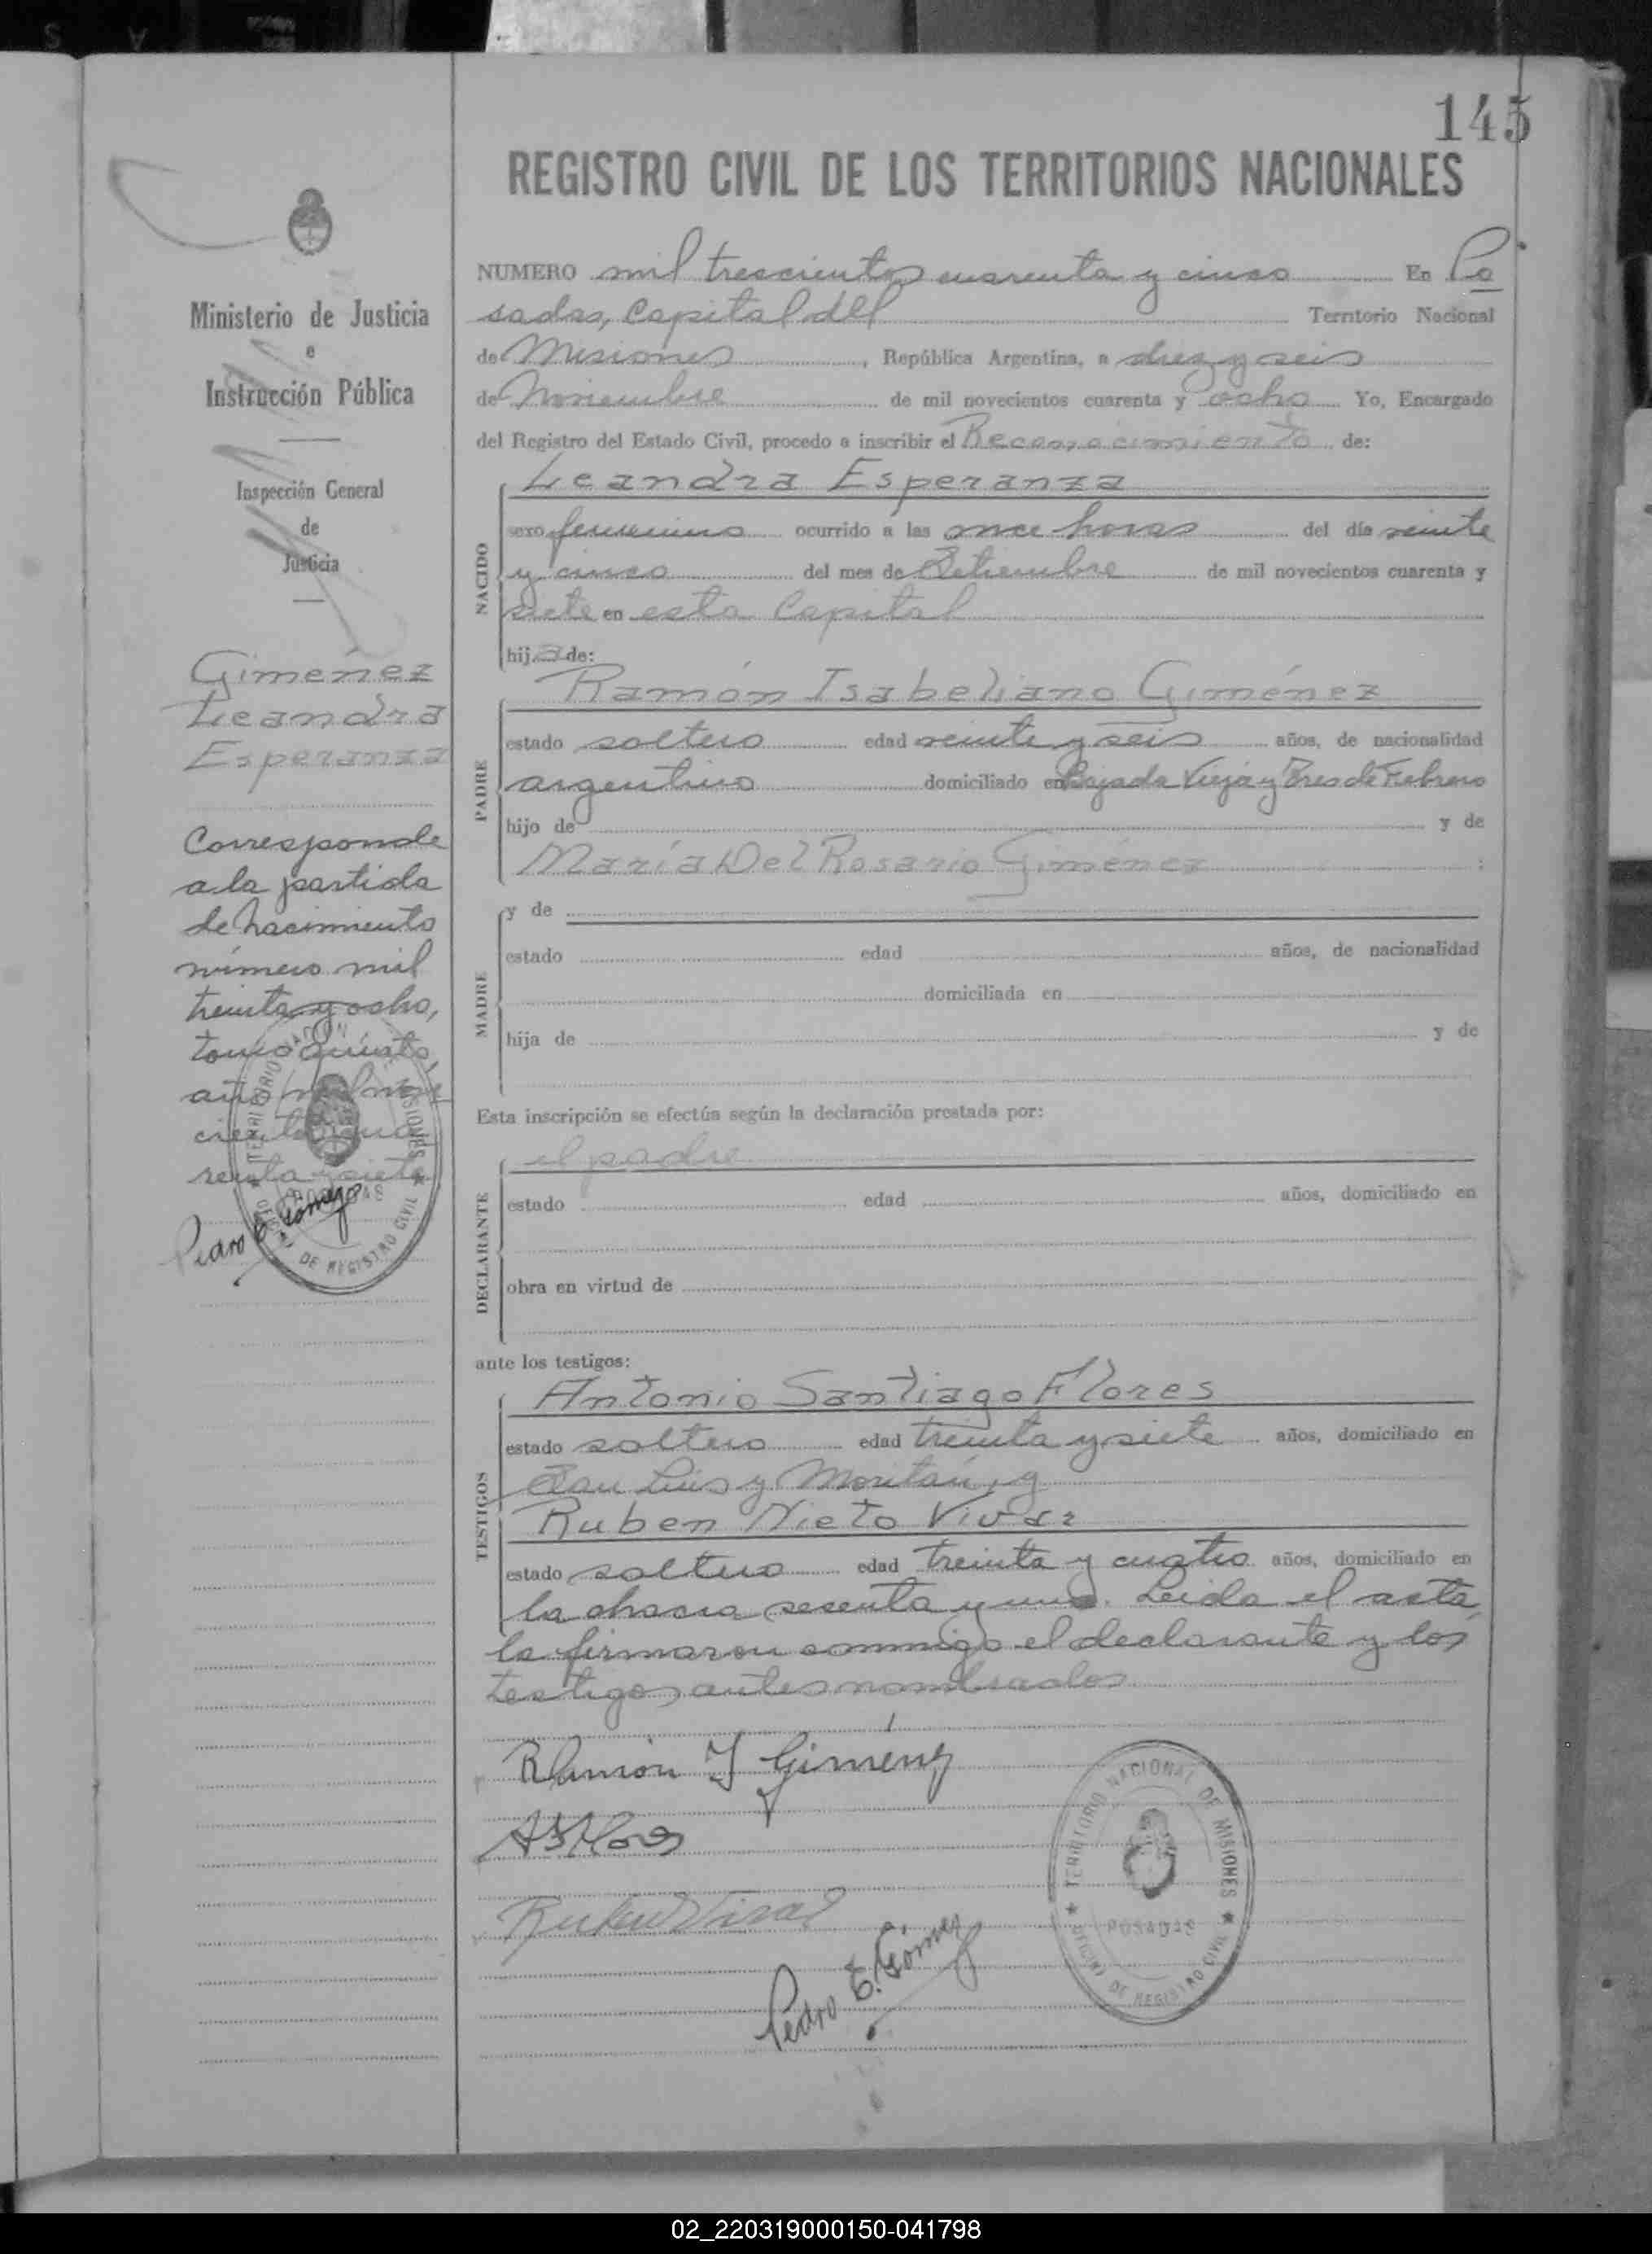 145
REGISTRO CIVIL DE LOS TERRITORIOS NACIONALES
Ministerio de Justicia
e
Instrucción Pública
Inspección General
de
Justicia
Giménez
Leandra
Esperanza
Corresponde
a la partida
de nacimiento
número mil
treinta y ocho,
tomo quinto,
año mil nove
cientos cua
renta y siete
Pedro E. Gómez
NUMERO mil trescientos cuarenta y cinco En Po
sadas, Capital del Territorio Nacional
de Misiones, República Argentina, a diez y seis
de Noviembre de mil novecientos cuarenta y ocho Yo, Encargado
del Registro del Estado Civil, procedo a inscribir el Reconocimiento de:
NACIDO
Leandra Esperanza
sexo femenino ocurrido a las once horas del día veinte
y cinco del mes de Setiembre de mil novecientos cuarenta y
siete en esta Capital
hija de:
PADRE
Ramón Isabeliano Giménez
estado soltero edad veinte y seis años, de nacionalidad
argentino domiciliado en Bajada Vieja y Tres de Febrero
hijo de y de
María Del Rosario Giménez :
MADRE
y de
estado edad años, de nacionalidad
domiciliada en
hija de y de
Esta inscripción se efectúa según la declaración prestada por:
DECLARANTE
el padre
estado edad años, domiciliado en
obra en virtud de
ante los testigos:
TESTIGOS
Antonio Santiago Flores
estado soltero edad treinta y siete años, domiciliado en
San Luis y y
Ruben Nieto Vivar
estado soltero edad treinta y cuatro años, domiciliado en
la chacra sesenta y uno. Leida el acta,
la firmaron conmigo el declarante y los
testigos antes nombrados
Ramón I Giménez
ASFlores
Ruben Vivar
Pedro E. Gómez
TERRITORIO NACIONAL DE MISIONES
POSADAS
OFICINA DE REGISTRO CIVIL
02_220319000150-041798